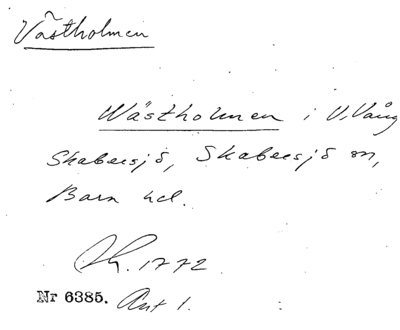 Västholmen
Wästholmen i V. Vång
Skabersjö, Skabersjö sn,
Bara hd.
1772
Nr 6385. Akt 1.